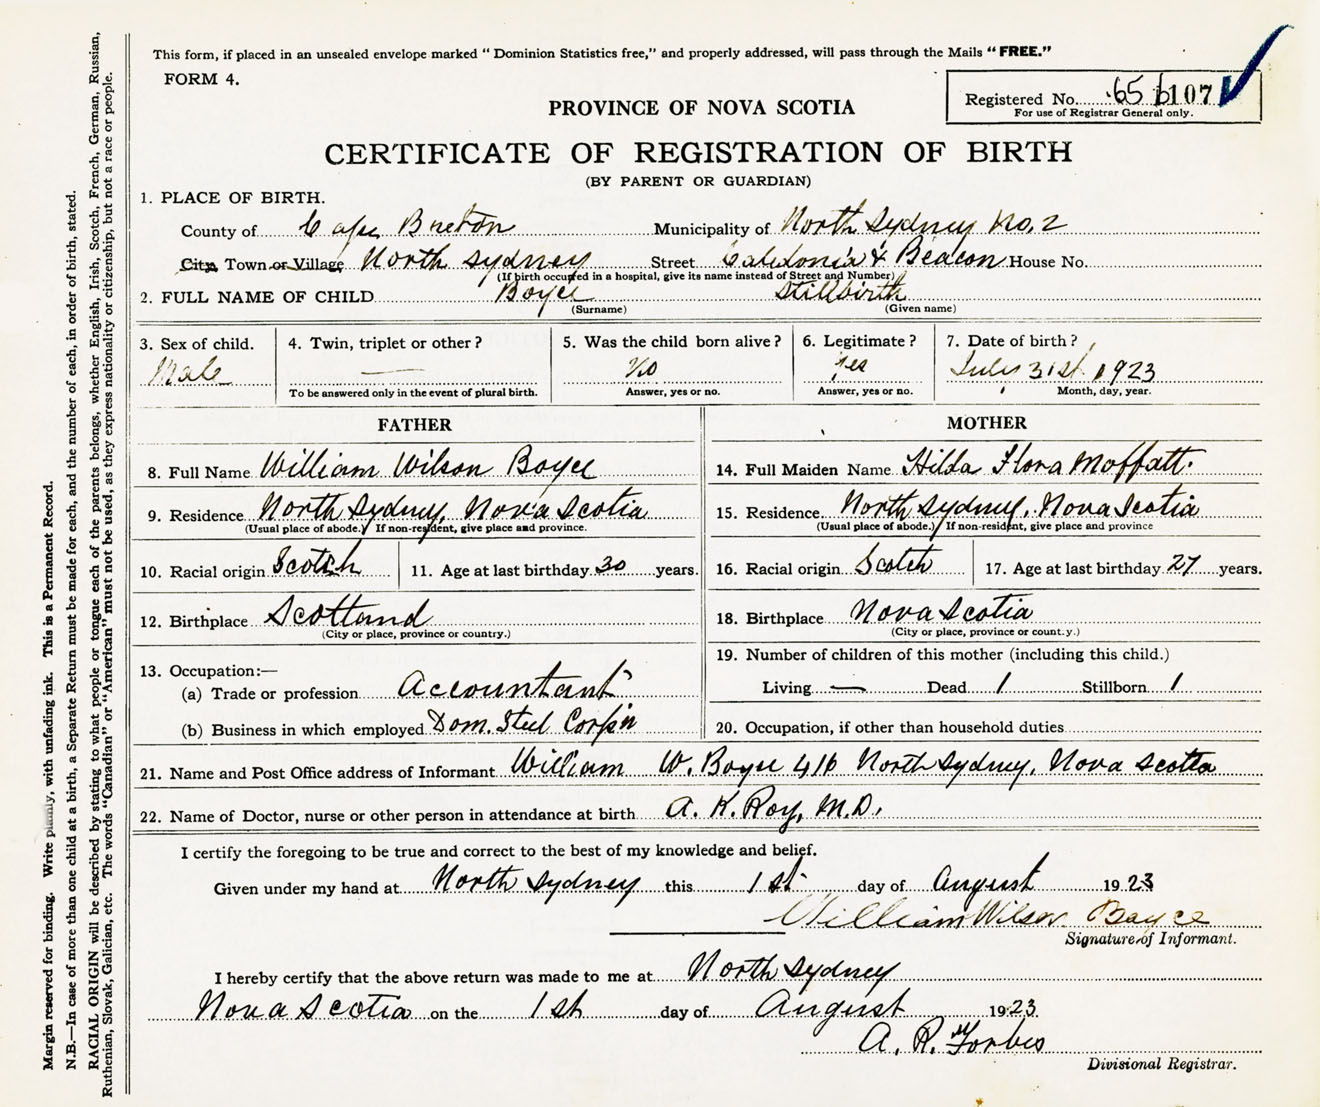 This form, if placed in an unsealed envelope marked "Dominion Statistics free," and properly addressed, will pass through the Mails "FREE."
FORM 4.
Registered No. 65 107
For use of Registrar General only.
PROVINCE OF NOVA SCOTIA
CERTIFICATE OF REGISTRATION OF BIRTH
(BY PARENT OR GUARDIAN)
1. PLACE OF BIRTH.
County of Cape Breton Municipality of North Sydney No. 2
City, Town or Village North Sydney Street Caledonia & Beacon House No.
(If birth occured in a hospital, give its name instead of Street and Number)
2. FULL NAME OF CHILD Boyce Stillbirth
(Surname) (Given name)
3. Sex of child. 4. Twin, triplet or other? 5. Was the child born alive? 6. Legitimate? 7. Date of birth?
Male — No Yes July 31st 1923
To be answered only in the event of plural birth. Answer, yes or no. Answer, yes or no. Month, day, year.
FATHER
8. Full Name William Wilson Boyce
9. Residence North Sydney, Nova Scotia
(Usual place of abode.) If non-resident, give place and province.
10. Racial origin Scotch 11. Age at last birthday 30 years.
12. Birthplace Scotland
(City or place, province or country.)
13. Occupation:—
(a) Trade or profession Accountant
(b) Business in which employed Dom. Steel Corp'n
MOTHER
14. Full Maiden Name Hilda Flora Moffatt.
15. Residence North Sydney, Nova Scotia
(Usual place of abode.) If non-resident, give place and province
16. Racial origin Scotch 17. Age at last birthday 27 years.
18. Birthplace Nova Scotia
(City or place, province or count.y.)
19. Number of children of this mother (including this child.)
Living — Dead 1 Stillborn 1
20. Occupation, if other than household duties
21. Name and Post Office address of Informant William W. Boyce 416 North Sydney, Nova Scotia
22. Name of Doctor, nurse or other person in attendance at birth A. K. Roy, M.D.
I certify the foregoing to be true and correct to the best of my knowledge and belief.
Given under my hand at North Sydney this 1st day of August 1923
William Wilson Boyce
Signature of Informant.
I hereby certify that the above return was made to me at North Sydney
Nova Scotia on the 1st day of August 1923.
A. R. Forbes
Divisional Registrar.
Margin reserved for binding. Write plainly, with unfading ink. This is a Permanent Record.
N.B.—In case of more than one child at a birth, a Separate Return must be made for each, and the number of each, in order of birth, stated.
RACIAL ORIGIN will be described by stating to what people or tongue each of the parents belongs, whether English, Irish, Scotch, French, German, Russian,
Ruthenian, Slovak, Galician, etc. The words "Canadian" or "American" must not be used, as they express nationality or citizenship, but not a race or people.